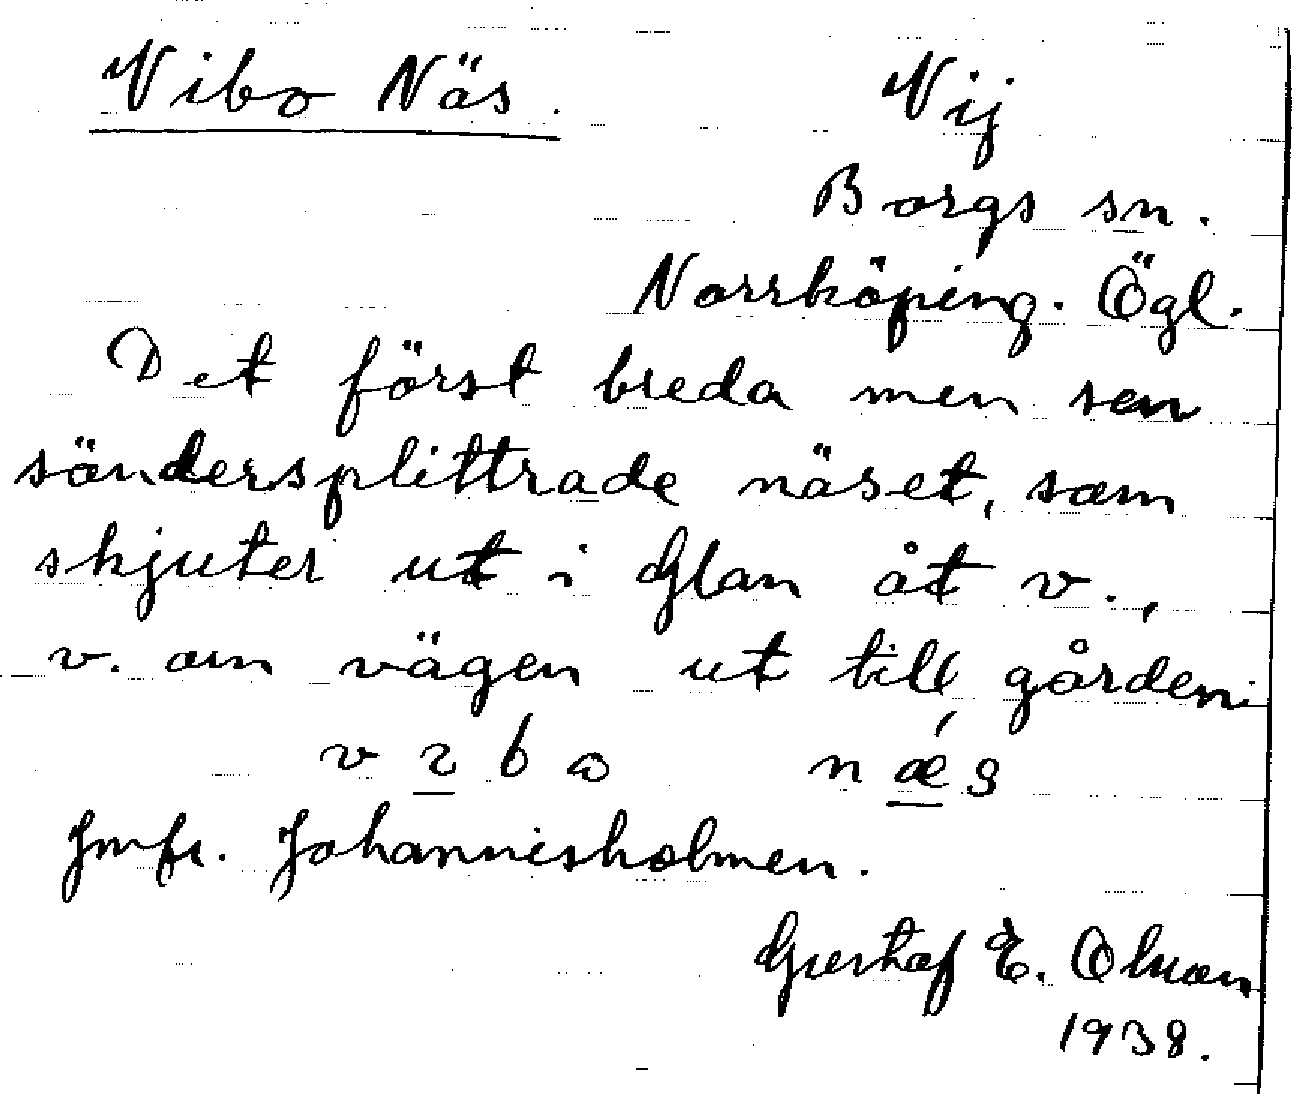 Vibo Näs. Vij
Borgs sn.
Norrköping. Ögl.
Det först breda men sen
söndersplittrade näset, som
skjuter ut i Glan åt v.,
v. om vägen ut till gården:
v ɩ b ω n ǽ s
Jmfr. Johannisholmen.
Gustaf E. Olsson
1938.